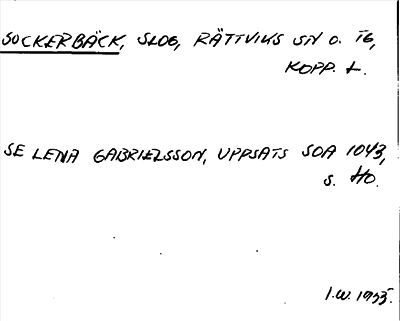 SOCKERBÄCK, SLOG, RÄTTVIKS SN O. TG,
KOPP. L.
SE LENA GABRIELSSON, UPPSATS SOA 1043,
S. 40.
I.W. 1955.